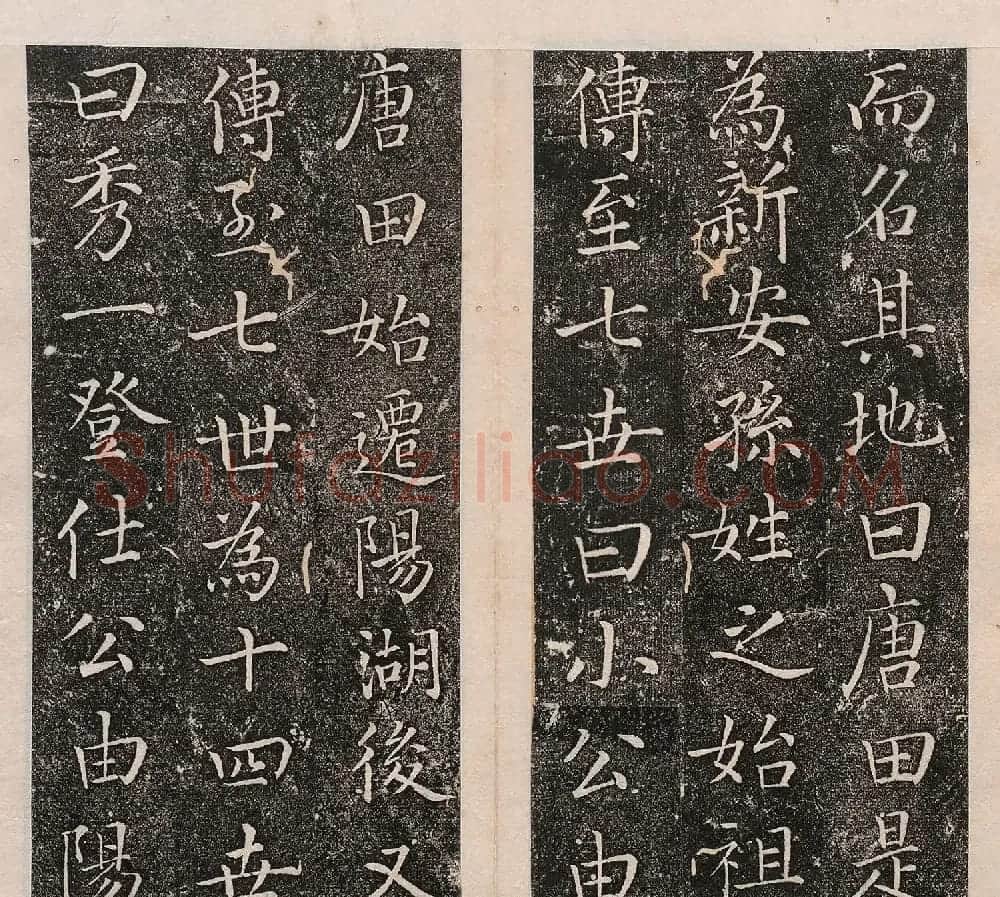 而名其地曰唐田是
為新安孫姓之始祖
傳至七世曰小公由
唐田始遷陽湖後又
傳至七世為十四世
曰秀一登仕公由陽
Shufaziliao.COM